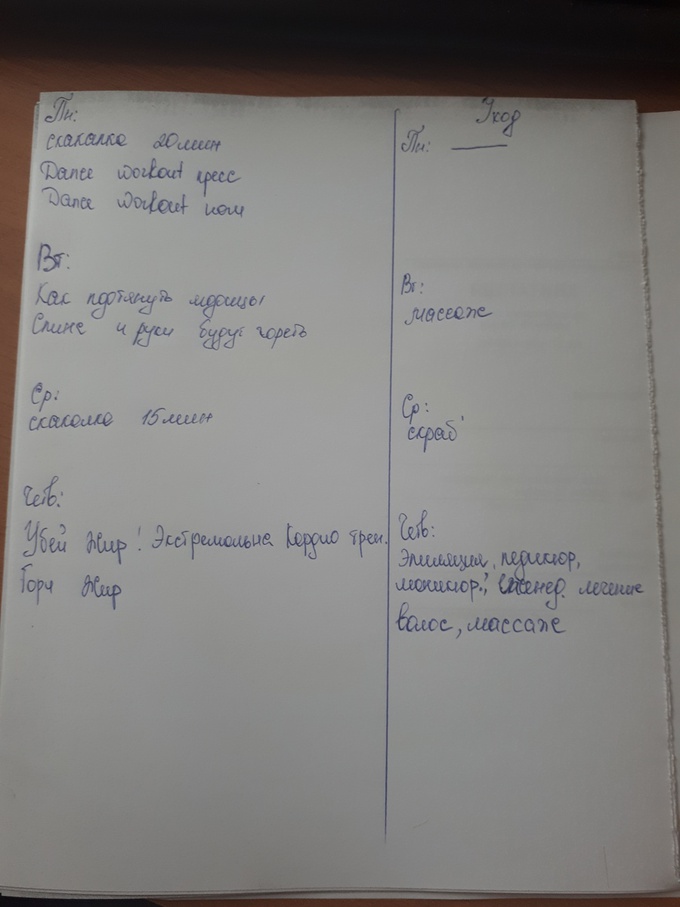 Пн:
скакалка 20 мин
Dance workout пресс
Dance workout ноги
Вт:
Как подтянуть ягодицы
Спина и руки будут гореть
Ср:
скакалка 15 мин
Четв:
Убей Жир! Экстремальна Кардио трен.
Гори Жир
Уход
Пн: —
Вт:
массаж
Ср:
скраб
Четв:
Эпиляция, педикюр,
маникюр, лечение
волос, массаж